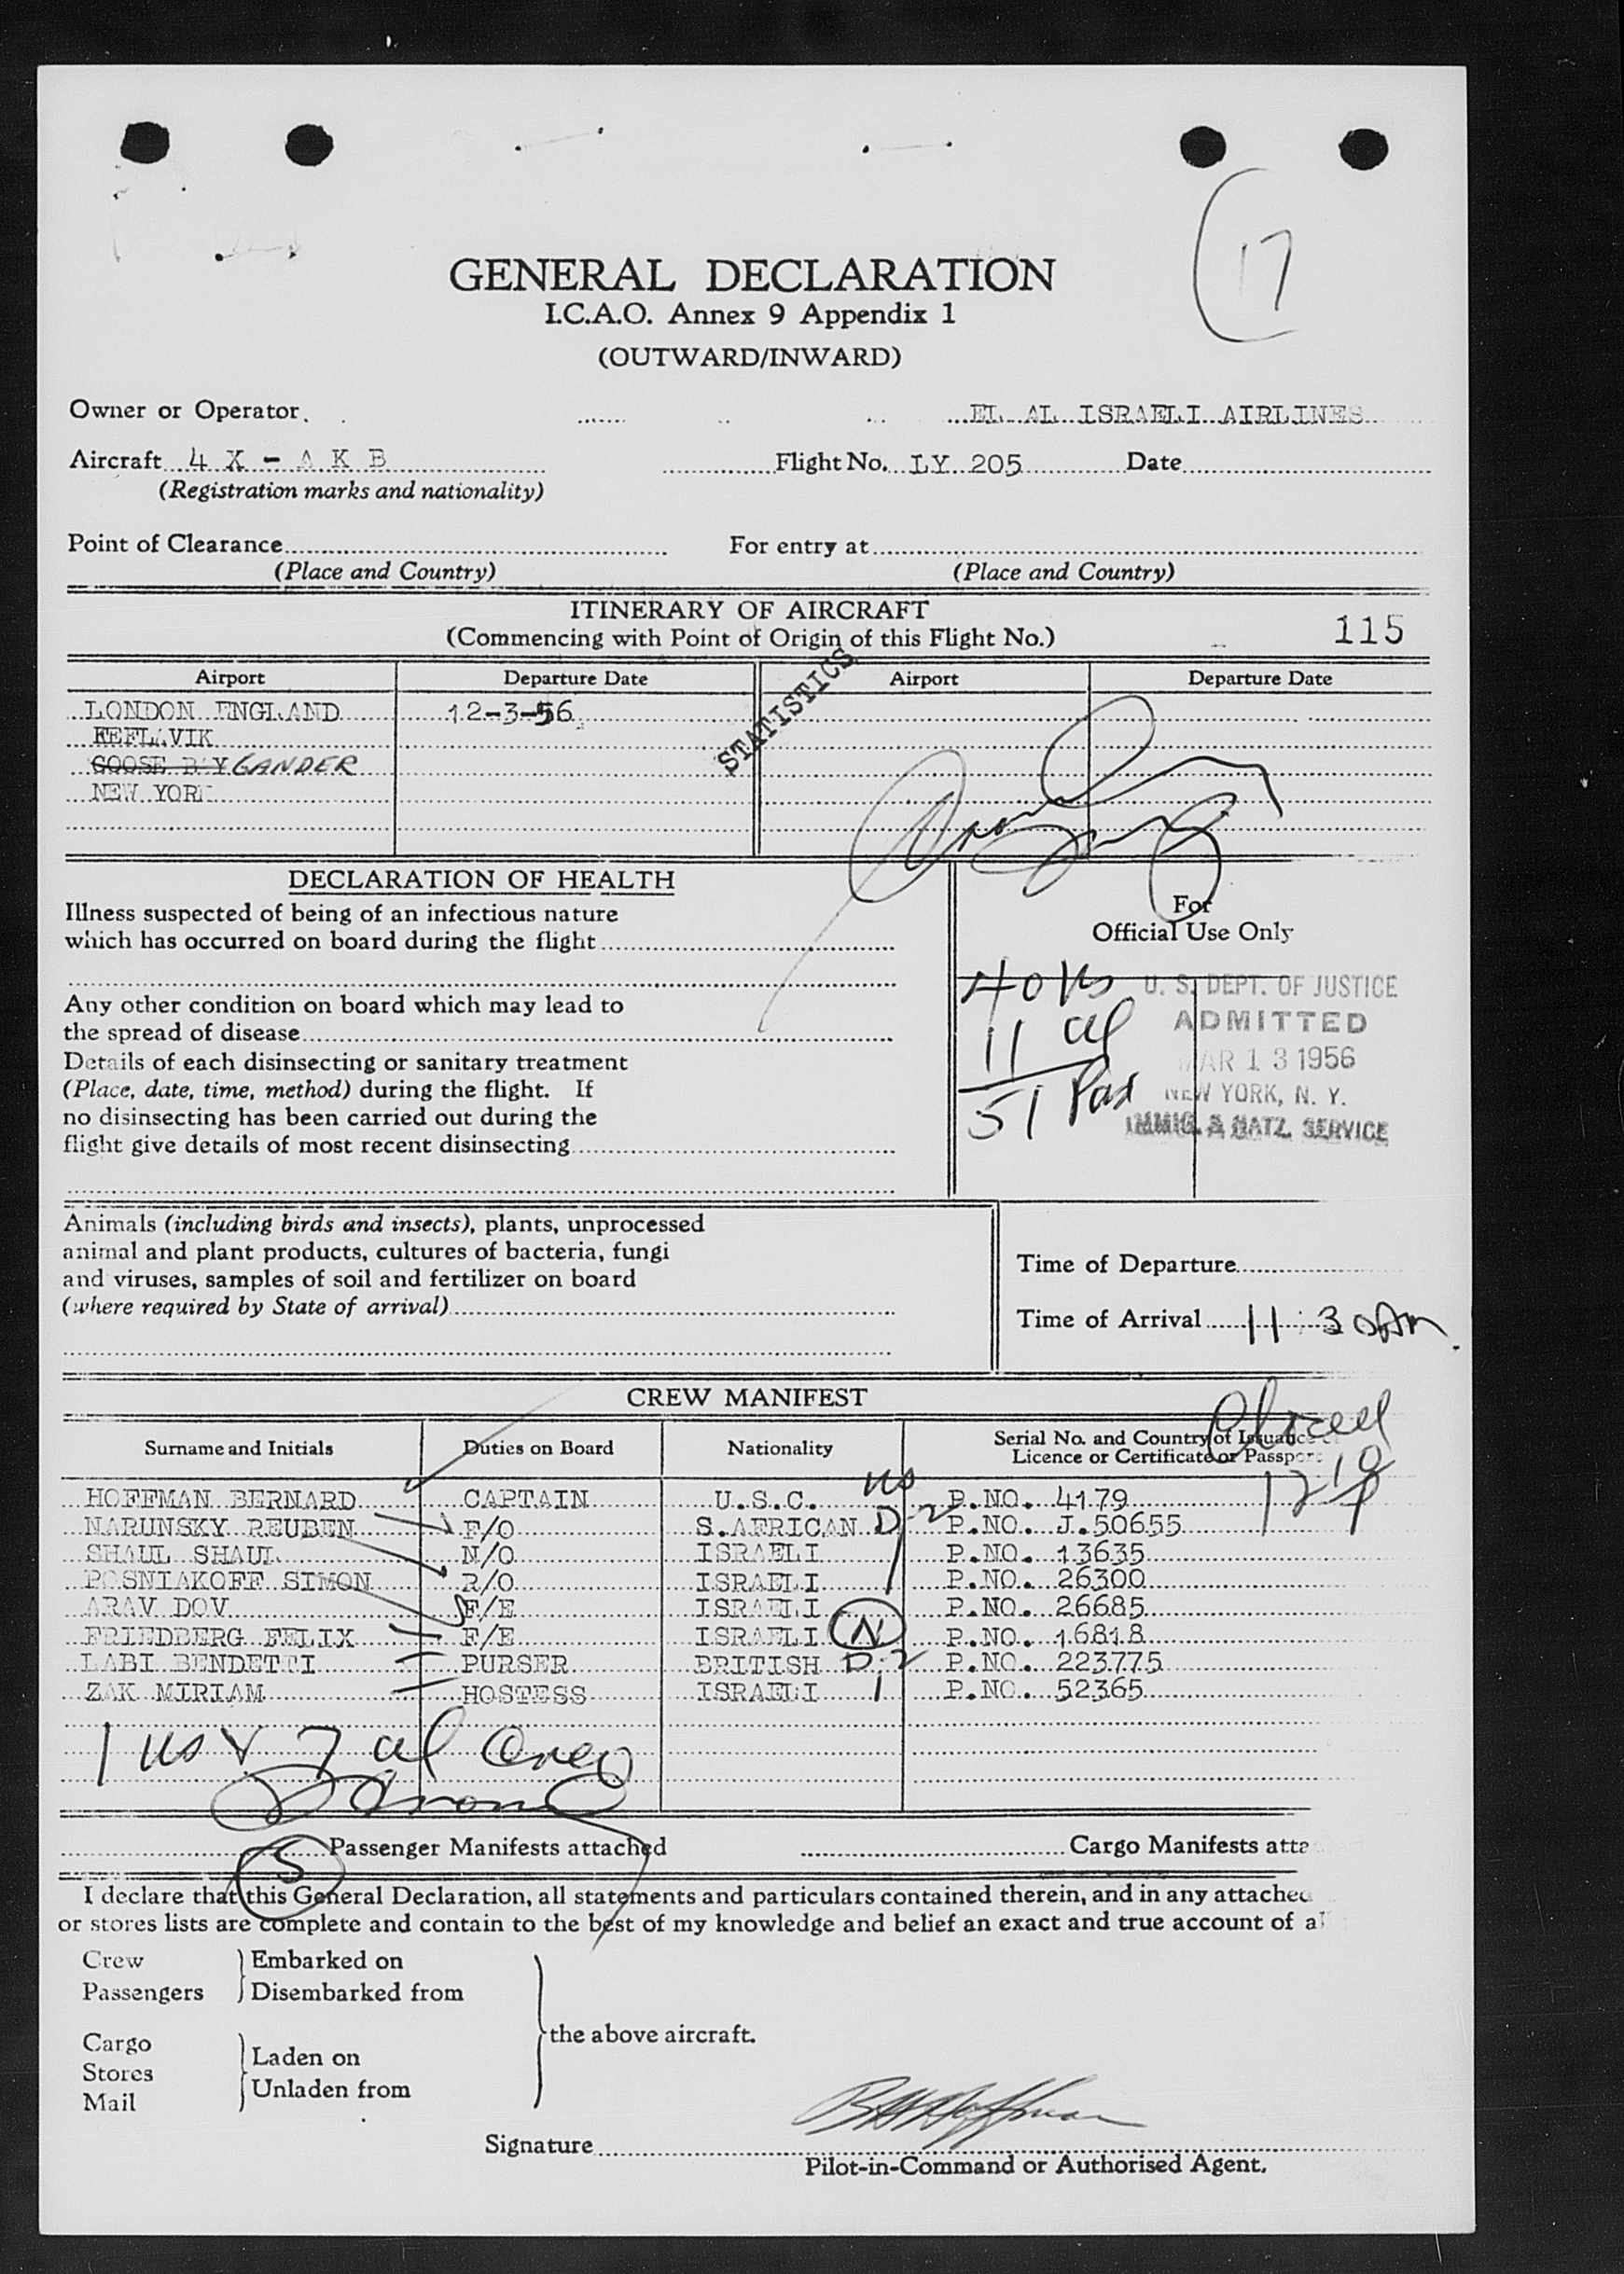 17
GENERAL DECLARATION
I.C.A.O. Annex 9 Appendix 1
(OUTWARD/INWARD)
Owner or Operator. EL AL ISRAELI AIRLINES
Aircraft 4 X - A K B Flight No. LY 205 Date
(Registration marks and nationality)
Point of Clearance For entry at
(Place and Country) (Place and Country)
ITINERARY OF AIRCRAFT
(Commencing with Point of Origin of this Flight No.) 115
Airport Departure Date Airport Departure Date
STATISTICS
LONDON ENGLAND 12-3-56
KEFLAVIK
GOOSE BAY GANDER
NEW YORK
DECLARATION OF HEALTH
Illness suspected of being of an infectious nature
which has occurred on board during the flight
Any other condition on board which may lead to
the spread of disease
Details of each disinsecting or sanitary treatment
(Place, date, time, method) during the flight. If
no disinsecting has been carried out during the
flight give details of most recent disinsecting
For
Official Use Only
40 us
11 al
51 Pax
U. S. DEPT. OF JUSTICE
ADMITTED
MAR 13 1956
NEW YORK, N. Y.
IMMIG. & NATZ. SERVICE
Animals (including birds and insects), plants, unprocessed
animal and plant products, cultures of bacteria, fungi
and viruses, samples of soil and fertilizer on board
(where required by State of arrival)
Time of Departure
Time of Arrival 11:30 Am.
CREW MANIFEST
Surname and Initials Duties on Board Nationality Serial No. and Country of Issuance of
Licence or Certificate or Passport
HOFFMAN BERNARD CAPTAIN U.S.C. us P.NO. 4179
NARUNSKY REUBEN F/O S.AFRICAN D-2 P.NO. J.50655
SHAUL SHAUL N/O ISRAELI P.NO. 13635
POSNIAKOFF SIMON R/O ISRAELI P.NO. 26300
ARAV DOV F/E ISRAELI P.NO. 26685
FRIEDBERG FELIX F/E ISRAELI N P.NO. 16818
LABI BENDETTI PURSER BRITISH D-2 P.NO. 223775
ZAK MIRIAM HOSTESS ISRAELI P.NO. 52365
1 us & 7 al Crew
5 Passenger Manifests attached Cargo Manifests atta
I declare that this General Declaration, all statements and particulars contained therein, and in any attached
or stores lists are complete and contain to the best of my knowledge and belief an exact and true account of al
Crew Embarked on
Passengers Disembarked from
the above aircraft.
Cargo
Stores Laden on
Mail Unladen from
Signature B Hoffman
Pilot-in-Command or Authorised Agent.